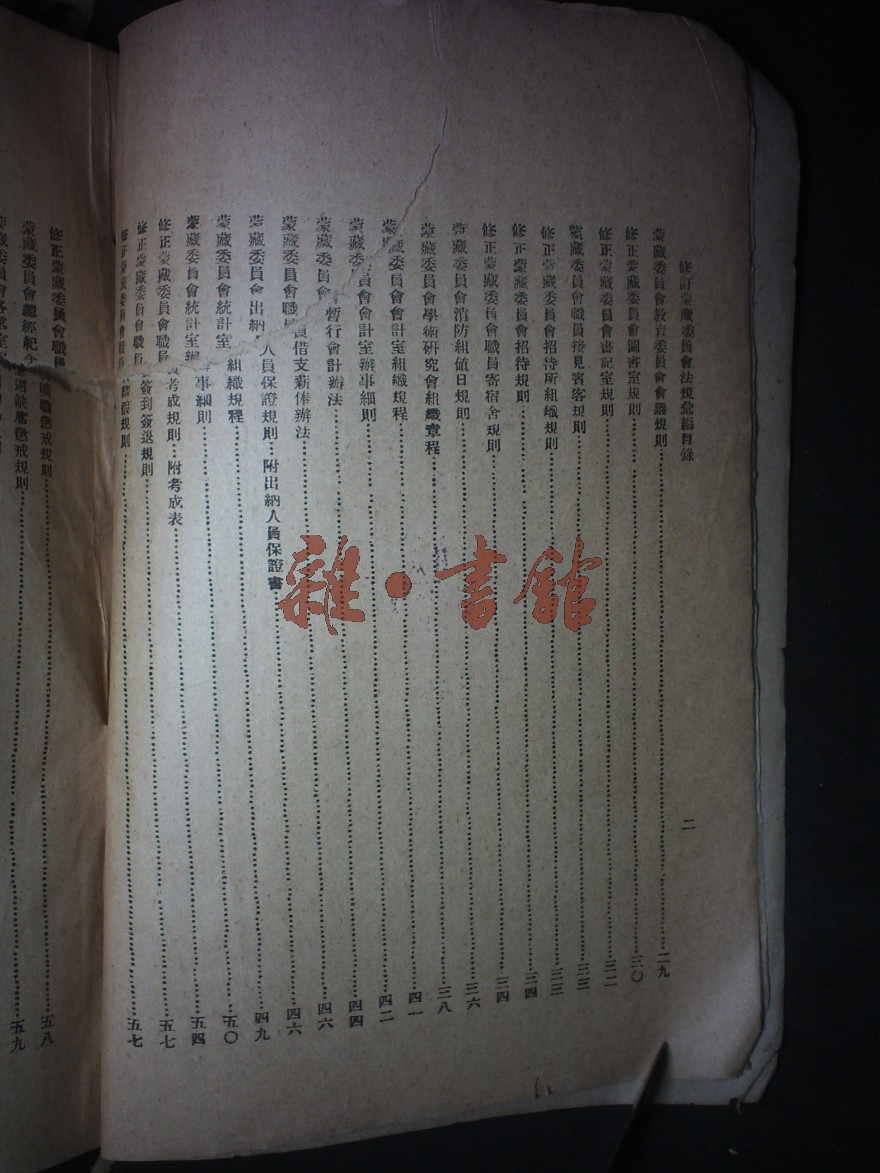 修訂蒙藏委員會法規彙編目錄
二
蒙藏委員會教育委員會會議規則……二九
修正蒙藏委員會圖書室規則……三〇
修正蒙藏委員會書記室規則……三二
蒙藏委員會職員接見賓客規則……三三
修正蒙藏委員會招待所組織規則……三三
修正蒙藏委員會招待規則……三四
修正蒙藏委員會職員寄宿舍規則……三四
蒙藏委員會消防組值日規則……三六
蒙藏委員會學術研究會組織章程……三八
蒙藏委員會會計室組織規程……四一
蒙藏委員會會計室辦事細則……四二
蒙藏委員會暫行會計辦法……四四
蒙藏委員會職員借支薪俸辦法……四六
蒙藏委員會出納人員保證規則…附出納人員保證書……四六
蒙藏委員會統計室組織規程……四九
蒙藏委員會統計室辦事細則……五〇
修正蒙藏委員會職員考成規則…附考成表……五四
修正蒙藏委員會職員簽到簽退規則……五七
修正蒙藏委員會職員請假規則……五七
修正蒙藏委員會職員曠職懲戒規則……五八
蒙藏委員會總理紀念週缺席懲戒規則……五九
雜·書館